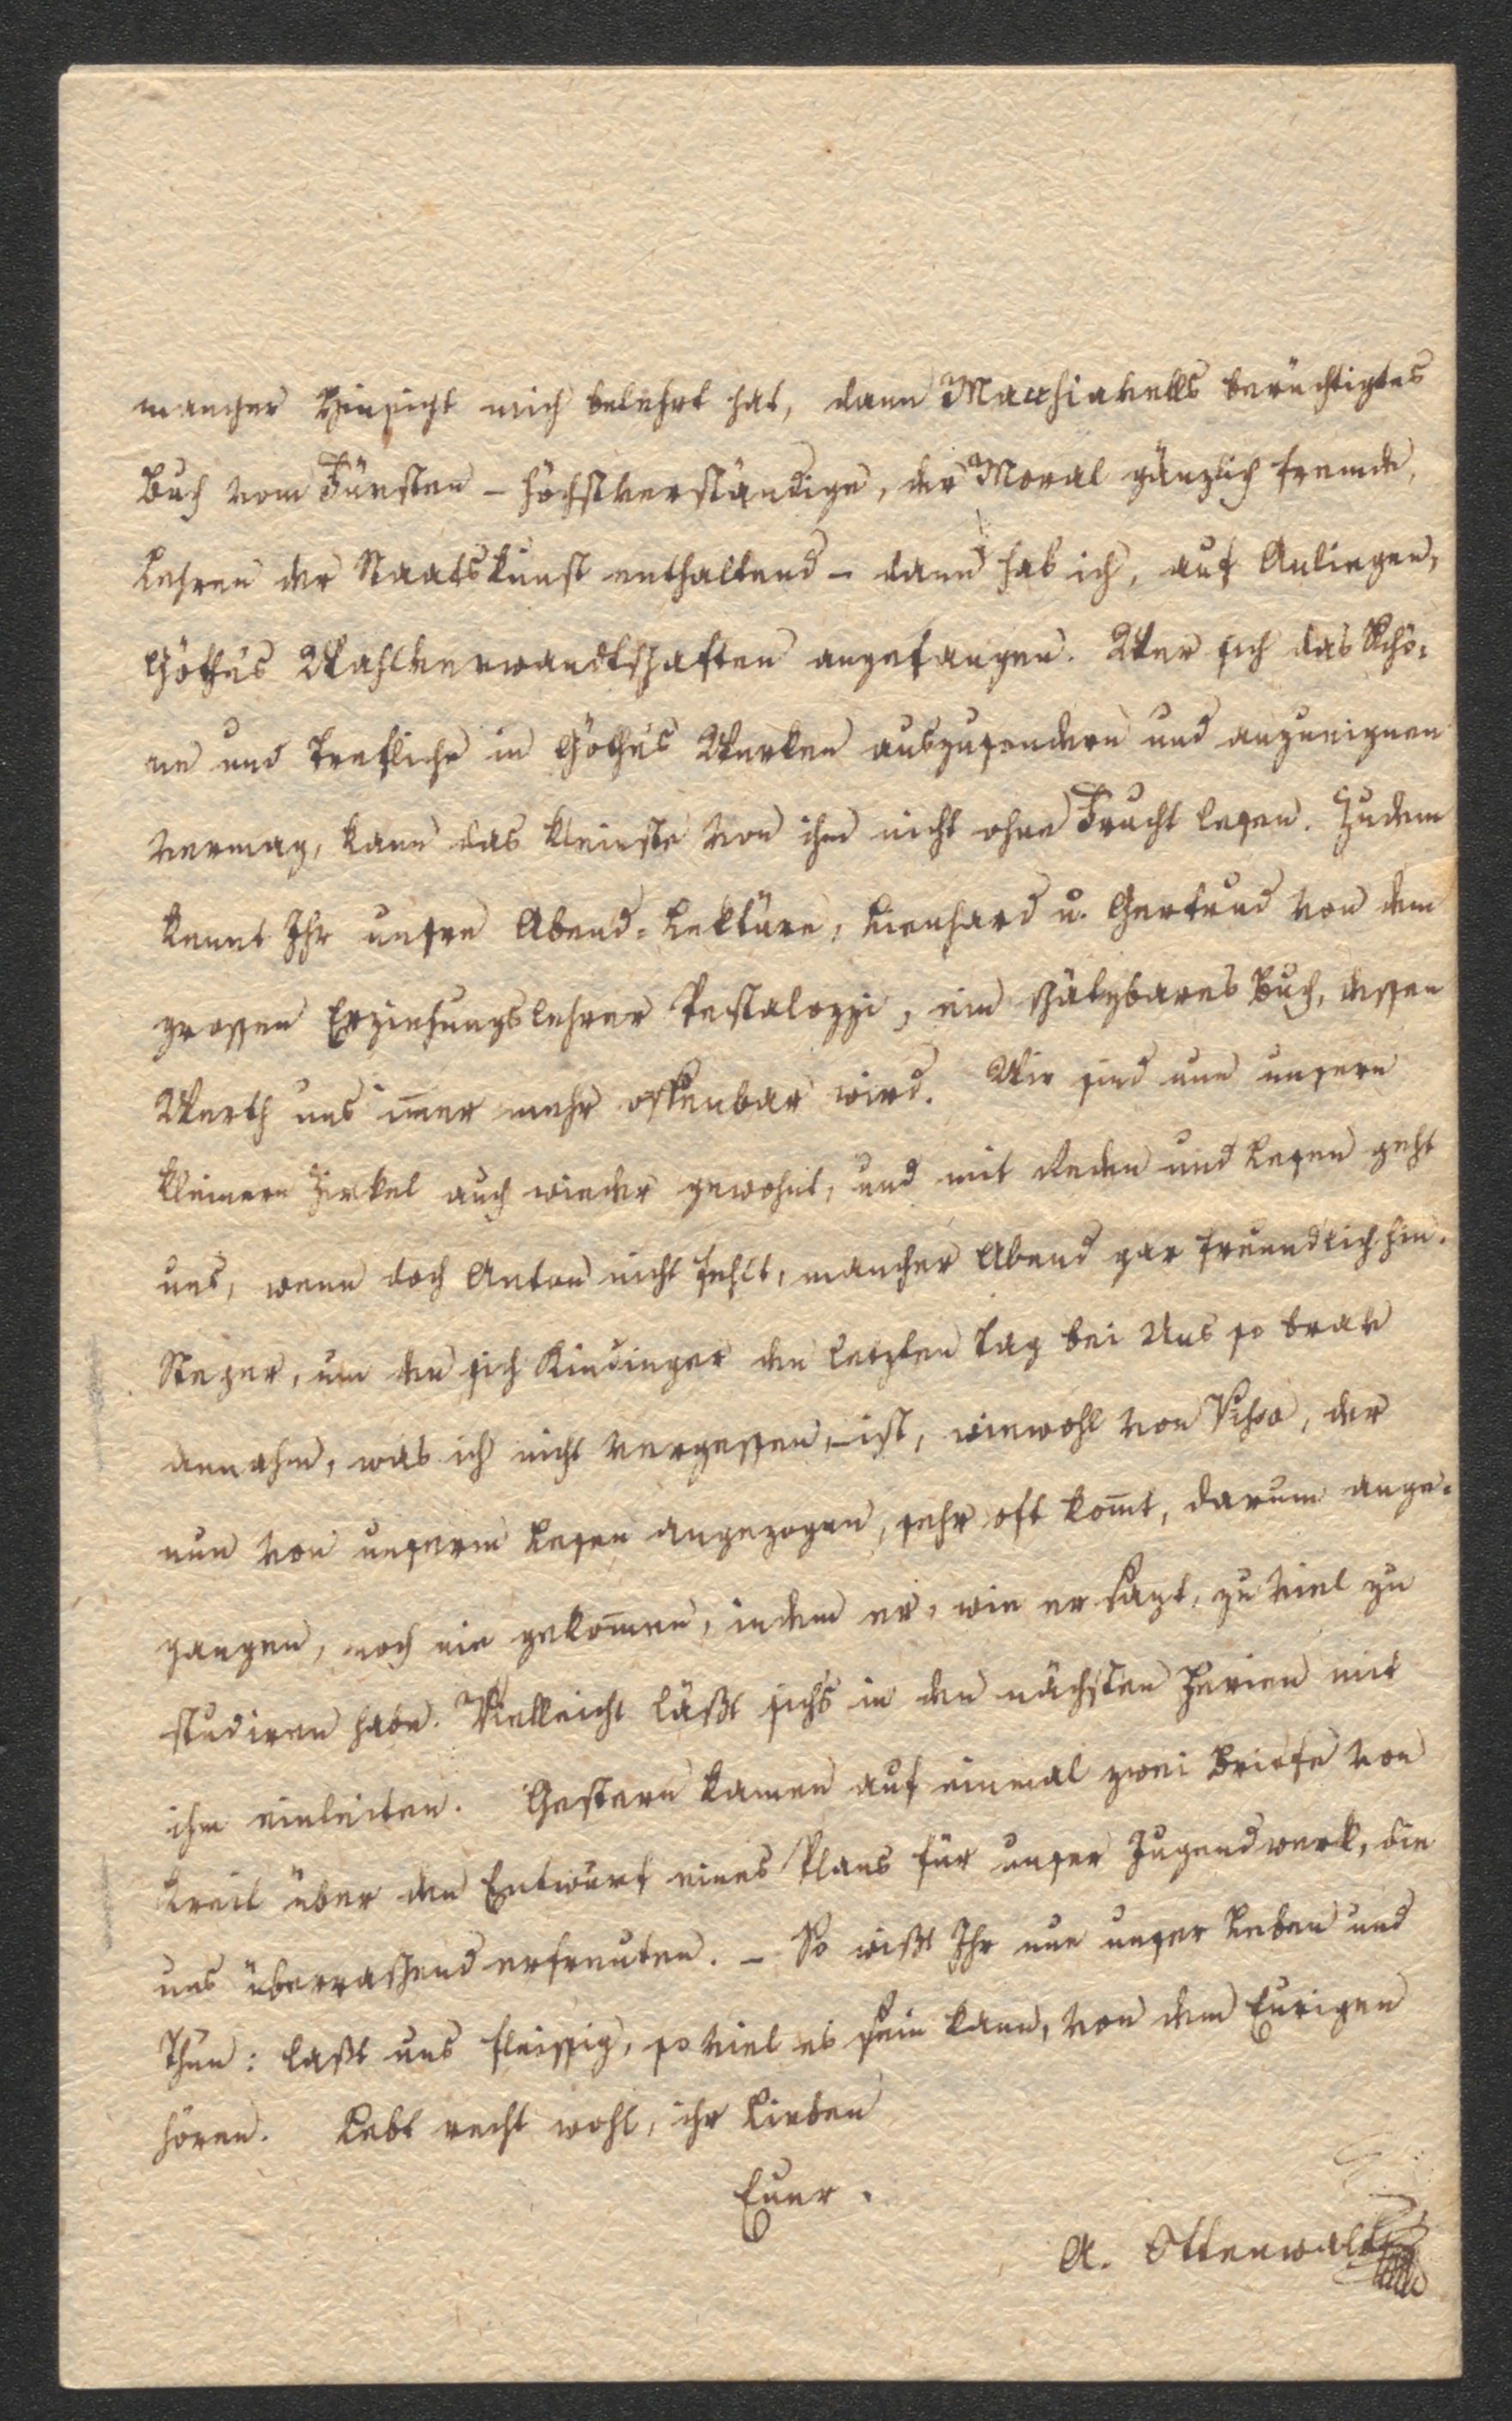 mancher Hinsicht mich belehrt hat, dann Macchiavells berüchtigtes
Buch vom Fürsten – höchstverständige, der Moral gänzlich fremde,
Lehren der Staatskunst enthaltend – dann hab ich, auf Anliegen,
Göthe's Wahlverwandtschaften angefangen. Wer sich das Schö-
ne und Trefliche in Göthe's Werken auszusondern und anzueignen
vermag, kann das kleinste von ihm nicht ohne Frucht lesen. Zudem
kennt Ihr unsre Abend-Lektüre, Lienhard u. Gertrud von dem
grossen Erziehungslehrer Pestalozzi, ein schätzbares Buch, dessen
Werth uns im̅er mehr offenbar wird. Wir sind nun unsern
kleinern Zirkel auch wieder gewohnt, und mit Reden und Lesen geht
uns, wenn doch Anton nicht fehlt, mancher Abend gar freundlich hin.
Steger, um den sich Kindinger den letzten Tag bei Uns so brav
annahm, was ich nicht vergessen, – ist, wiewohl von, der
nun von unserm Lesen angezogen, sehr oft kom̅t, darum ange-
gangen, noch nie gekom̅en, indem er, wie er sagt, zu viel zu
studiren habe. Vielleicht läßt sichs in den nächsten Ferien mit
ihm einleiten. Gestern kamen auf einmal zwei Briefe von
Kreil über den Entwurf eines Plans für unser Jugendwerk, die
uns überraschend erfreuten. – So wißt Ihr nun unser Leben und
Thun: laßt uns fleissig, so viel es sein kann, von dem Eurigen
hören. Lebt recht wohl, ihr Lieben
Euer.
A. Ottenwalt